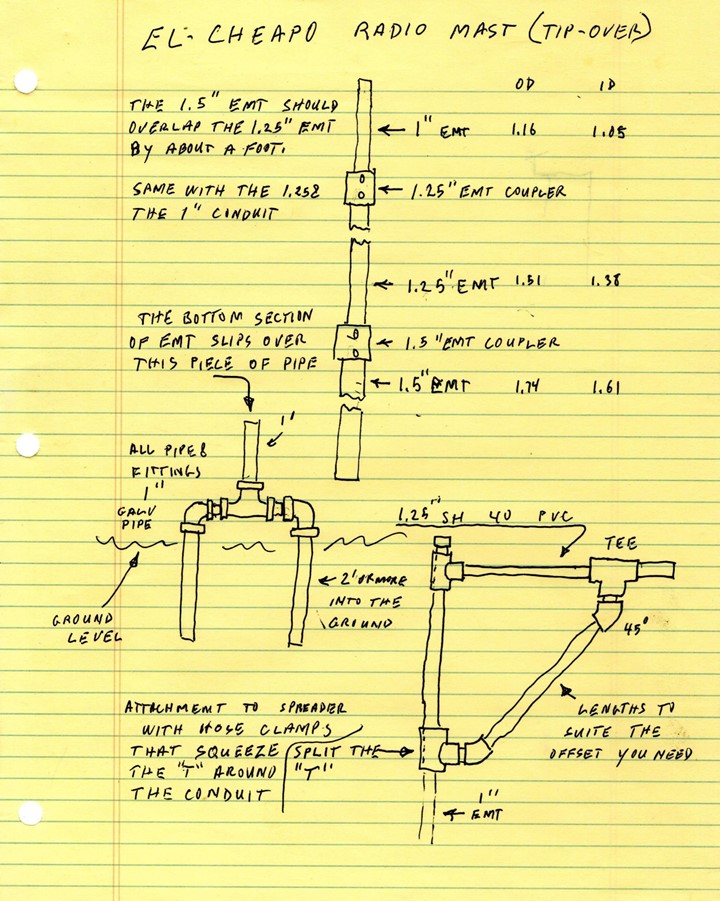 EL-CHEAPO RADIO MAST (TIP-OVER)
OD ID
THE 1.5" EMT SHOULD
OVERLAP THE 1.25" EMT
BY ABOUT A FOOT.
1" EMT 1.16 1.05
SAME WITH THE 1.25&
THE 1" CONDUIT
1.25" EMT COUPLER
1.25" EMT 1.51 1.38
THE BOTTOM SECTION
OF EMT SLIPS OVER
THIS PIECE OF PIPE
1.5" EMT COUPLER
1.5" EMT 1.74 1.61
1"
ALL PIPE &
FITTINGS
1"
GALV
PIPE
1.25" SH 40 PVC
TEE
GROUND
LEVEL
2' OR MORE
INTO THE
GROUND
45°
ATTACHMENT TO SPREADER
WITH HOSE CLAMPS
THAT SQUEEZE
THE "T" AROUND
THE CONDUIT
SPLIT THE
"T"
LENGTHS TO
SUITE THE
OFFSET YOU NEED
1"
EMT